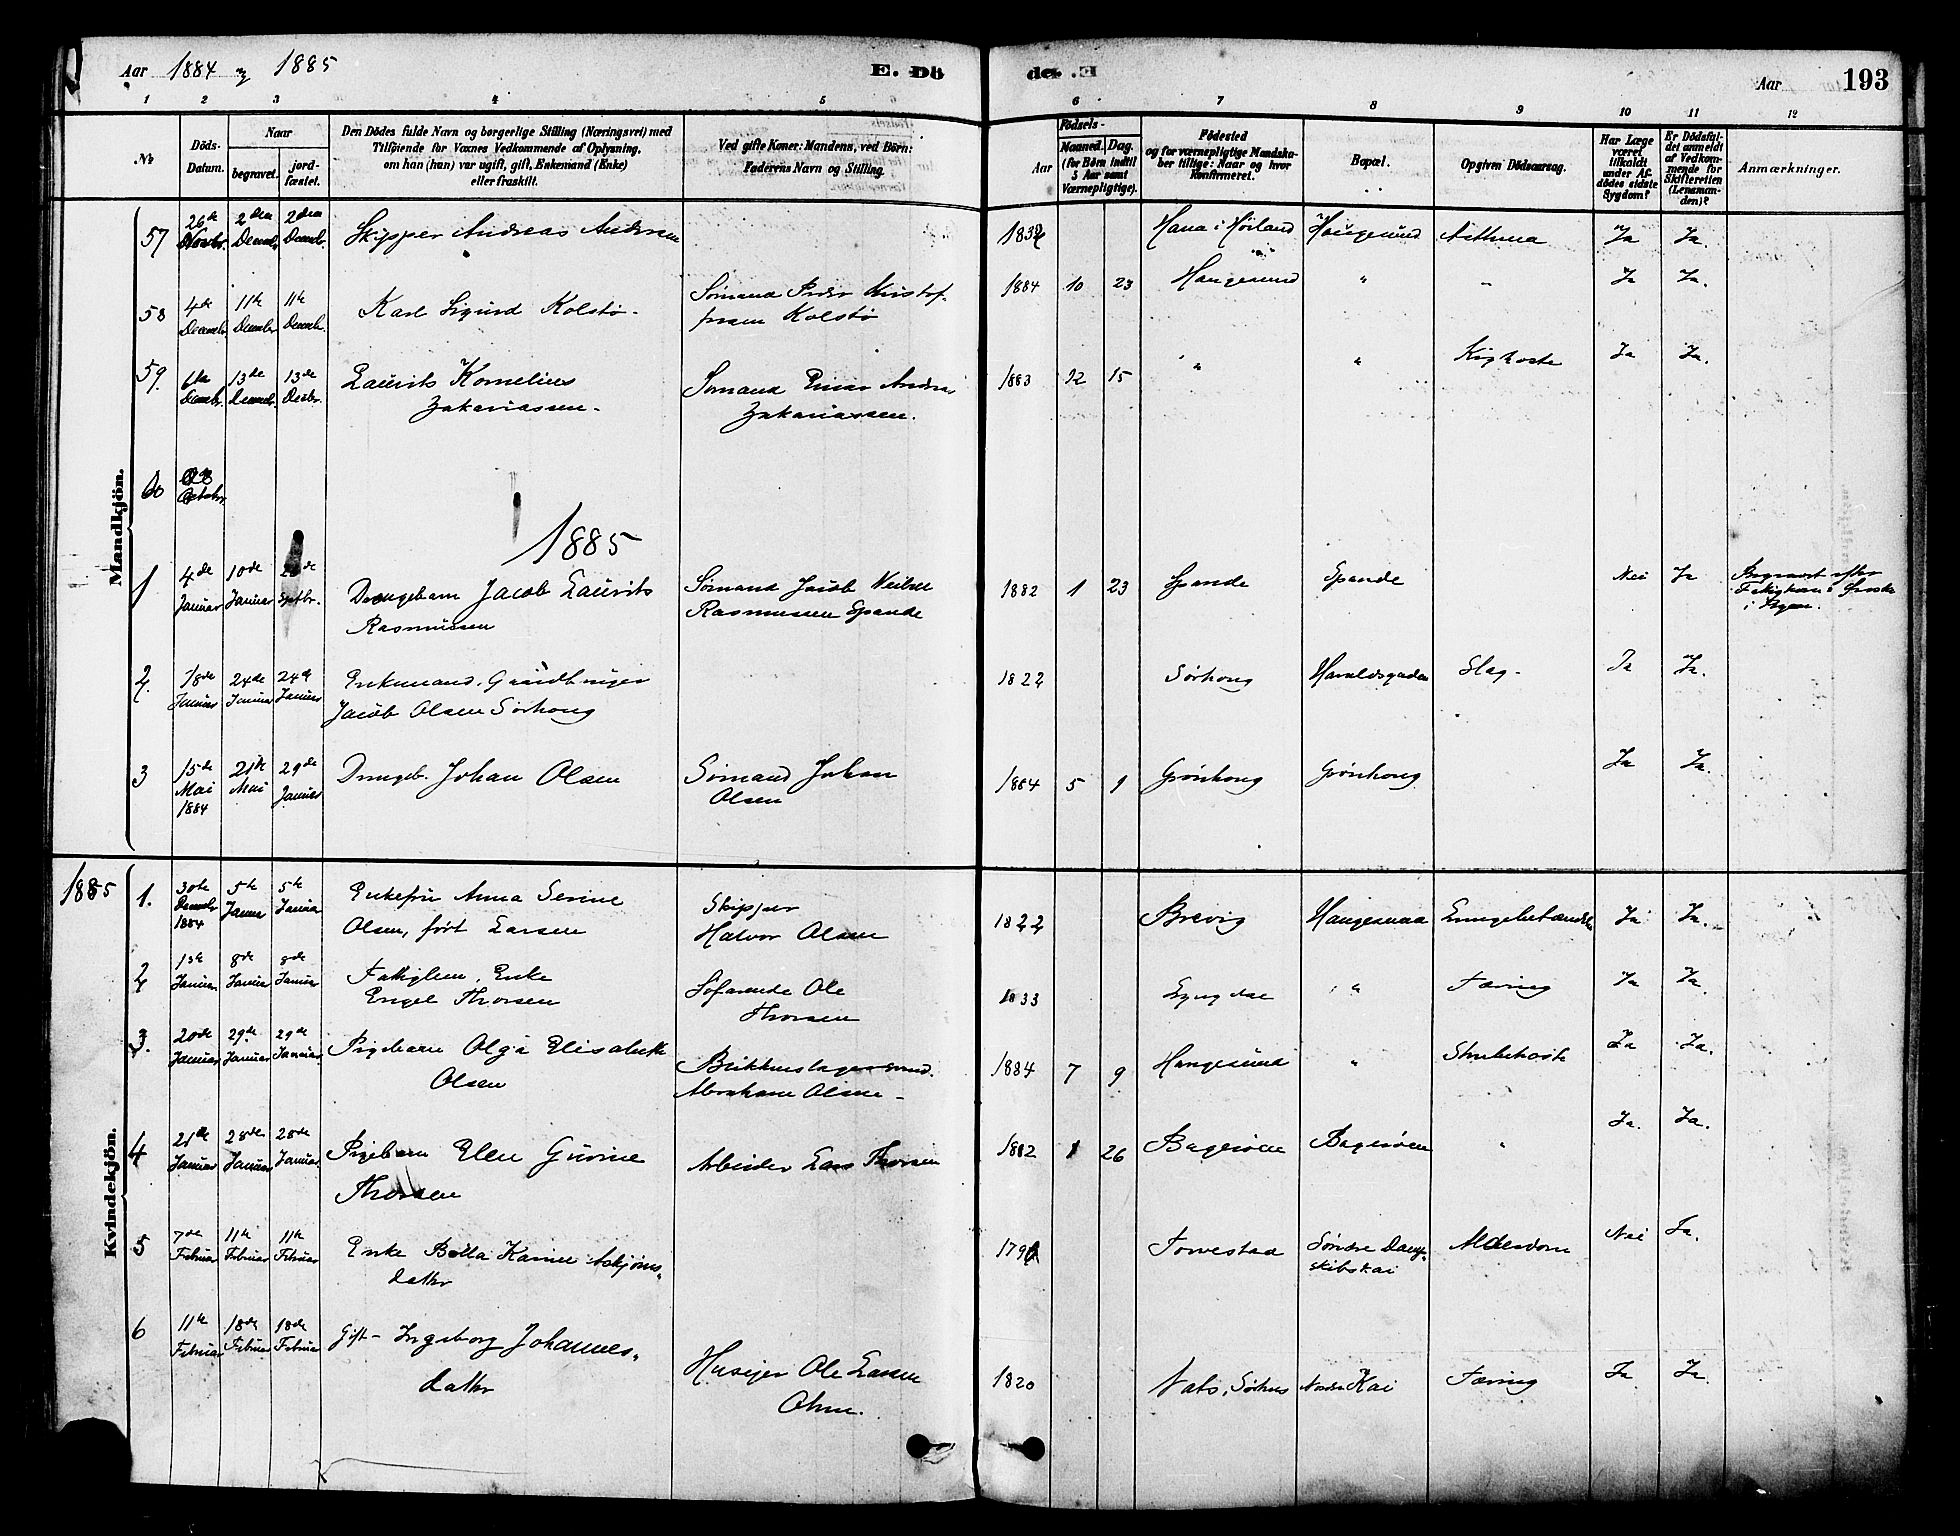 Aar 1884 og 1885
E. Dö
de. E
Aar
193
1 2 3 4 5 6 7 8 9 10 11 12
No
Döds-
Datum.
Naar
begravet.
jord-
fæstet.
Den Dödes fulde Navn og borgerlige Stilling (Næringsvei) med
Tilföiende for Voxnes Vedkommende af Oplysning,
om han (hun) var ugift, gift, Enkemand (Enke)
eller fraskilt.
Ved gifte Koner: Mandens, ved Börn:
Faderens Navn og Stilling.
Födsels-
Aar
Maaned.
Dag.
(for Börn indtil
5 Aar samt
Værnepligtige).
Födested
og for værnepligtige Mandska-
ber tillige: Naar og hvor
konfirmeret.
Bopæl.
Opgiven Dödsaarsag.
Har Læge
været
tilkaldt
under Af-
dödes sidste
Sygdom?
Er Dödsfal-
det anmeldt
af Vedkom-
mende for
Skifteretten
(Lensman-
den)?
Anmærkninger.
Mandkjön.
57 26de Novbr. 2den Decembr. 2den Decembr. Skipper Andreas Andersen 1832 Hana i Høiland Haugesund Asthma Ja Ja.
58 4de Decembr. 11te Decembr. 11te Decembr. Karl Sigurd Kolstø. Sømand Peder Kristof-
fersen Kolstø 1884 10 23 Haugesund " " Ja Ja.
59. 6te Decembr. 13de Decembr. 13de Decbr. Laurits Kornelius
Zakariassen. Sømand Einar Andreas
Zakariassen. 1883 12 15 " " Kighoste Ja Ja.
60 Octobr.
1885
1 4de Januar 10de Januar Septbr. Drengebarn Jacob Laurits
Rasmussen Sømand Jacob
Rasmussen Spande 1882 1 23 Spande Spande Nei Ja Begravet efter
i Byen.
2. 18de Januar 24de Januar 24de Januar Enkemand, Gaardbruger
Jacob Olsen Sørhoug 1822 Sørhoug Haraldsgaden Slag. Ja Ja.
3 15de Mai 1884 21de Mai 29de Januar Drengeb. Johan Olsen Sømand Johan
Olsen 1884 5 9 Grønhoug Grønhoug Ja Ja.
1885
Kvindekjön.
1. 30te Decembr 1884 5te Januar 5te Januar Enkefru Anna Serine
Olsen, født Larsen Skipper
Halvor Olsen 1822 Brevig Haugesund Lungebetændelse Ja Ja.
2 1ste Januar 8de Januar 8de Januar Fattiglem, Enke
Engel Thorsen Søfarende Ole
Thorsen 1833 Lyngdal " Tæring Ja Ja.
3. 20de Januar 29de Januar 29de Januar Pigebarn Olga Elisabeth
Olsen Blikkenslagersvend
Abraham Olsen 1884 7 9 Haugesund " Strubehoste Ja Ja.
4 21de Januar 28de Januar 28de Januar Pigebarn Elen Gurine
Thorsen Arbeider Lars Thorsen 1882 1 26 Bagerøen Bagerøen " Ja. Ja.
5 7de Februar 11te Februar 11te Februar Enke Bella Karine Askjørns-
datter Torvestad Søndre Damp-
skibskai Alderdom Nei Ja.
6 11te Februar 18de Februar 18de Februar Gift - Ingeborg Johannes-
datter Huseier Ole Larsen
1820 Vats, Sørhus Nordre Kai Tæring Ja Ja.